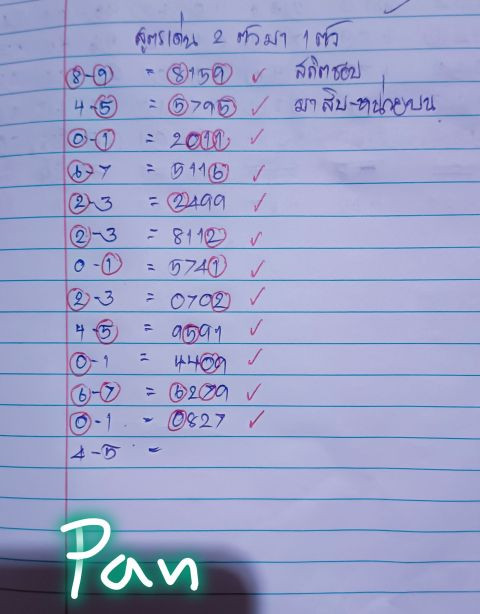 สูตรเด่น 2 ตัวมา 1 ตัว
8-9 = 8159 ✓ สถิติชอบ
4-5 = 5795 ✓ มาสิบ-หน่วยบน
0-1 = 2011 ✓
6-7 = 5116 ✓
2-3 = 2499 ✓
2-3 = 8112 ✓
0-1 = 5741 ✓
2-3 = 0702 ✓
4-5 = 9591 ✓
0-1 = 4409 ✓
6-7 = 6279 ✓
0-1 = 0827 ✓
4-5 =
Pan